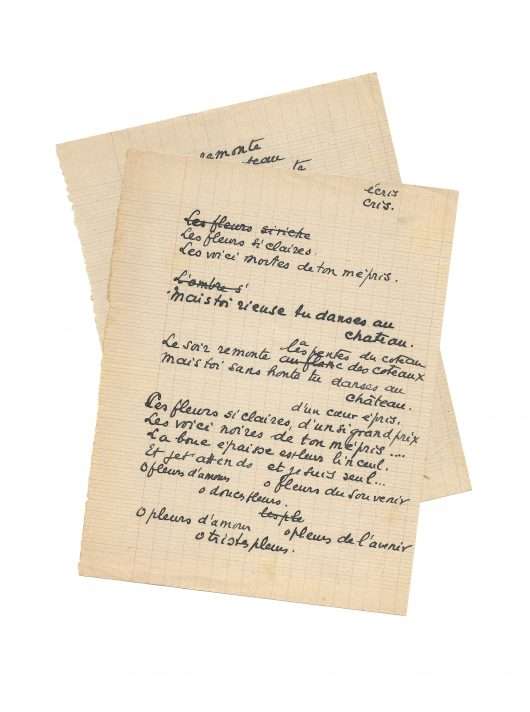 remonte
teau
te
écris
cris.
Les fleurs si riche
Les fleurs si claires.
Les voici mortes de ton mépris.
L'ombre s'
Mais toi rieuse tu danses au
chateau.
à
les pentes du coteau
Le soir remonte au flanc des coteaux
mais toi sans honte tu danses au
château.
d'un cœur épris.
Ces fleurs si claires, d'un si grand prix
Les voici noires de ton mépris ....
La boue épaisse est leur linceul.
Et je t'attends et je suis seul...
O fleurs d'amour O fleurs du souvenir
O douces fleurs.
les ple
O pleurs d'amour O pleurs de l'avenir
O tristes pleurs.